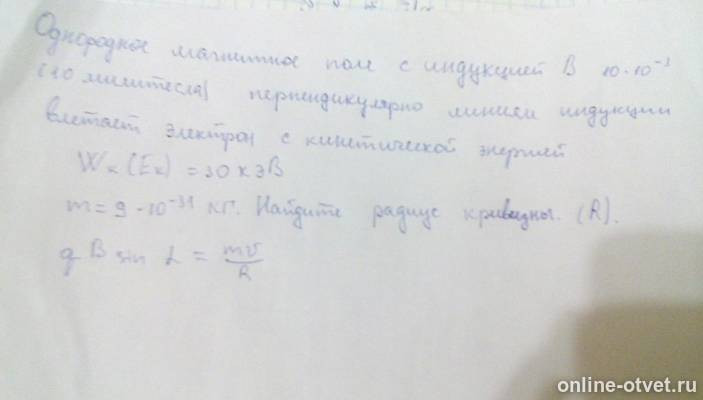 Однородное магнитное поле с индукцией B 10·10⁻³
(10 милитесла) перпендикулярно линиям индукции
влетает электрон с кинетической энергией
Wк (Eк) = 30 кэВ
m = 9·10⁻³¹ кг. Найдите радиус кривизны. (R).
q B sin L = mv/R
online-otvet.ru